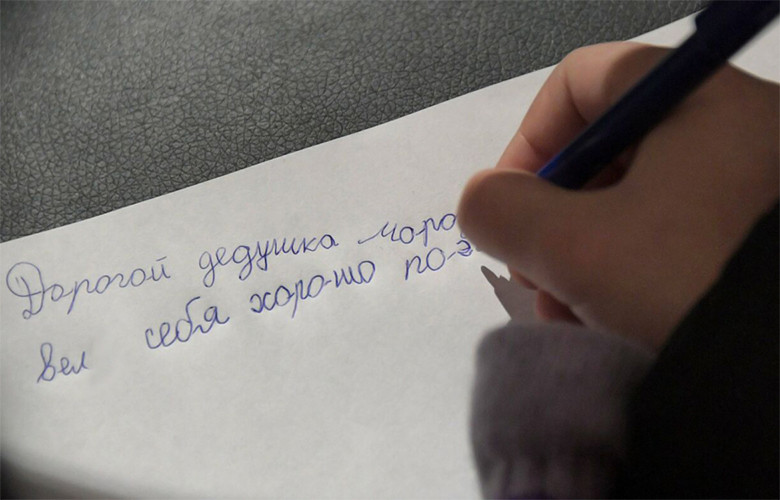 Дорогой дедушка моро
вел себя хорошо по-э